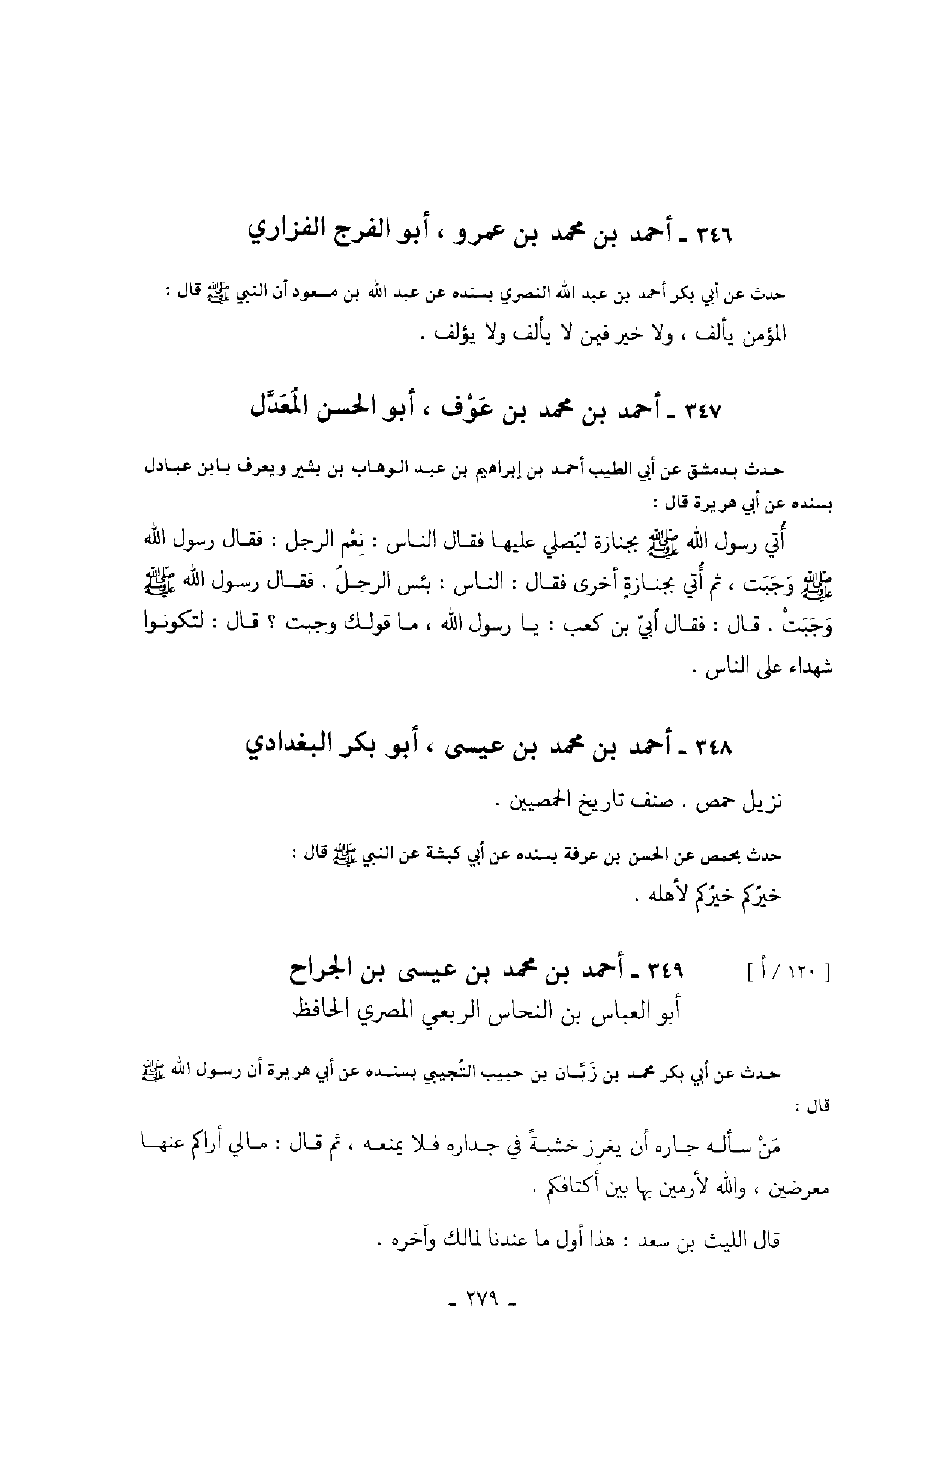 ٣٤٦ ـ أحمد بن محمد بن عمرو ، أبو الفرج الفزاري
حدث عن أبي بكر أحمد بن عبد الله النصري بسنده عن عبد الله بن مسعود أن النبي ﷺ قال :
المؤمن يألف ، ولا خير فيمن لا يألف ولا يؤلف .
٣٤٧ ـ أحمد بن محمد بن عَوْف ، أبو الحسن المُعَدَّل
حدث بدمشق عن أبي الطيب أحمد بن إبراهيم بن عبد الوهاب بن بشير ويعرف بابن عبادل
بسنده عن أبي هريرة قال :
أُتي رسول الله ﷺ بجنازة ليُصلي عليها فقال الناس : نِعْم الرجل : فقال رسول الله
ﷺ وَجَبَت ، ثم أُتي بجنازةٍ أخرى فقال : الناس : بئس الرجلُ . فقال رسول الله ﷺ
وَجَبَتْ . قال : فقال أبيّ بن كعب : يا رسول الله ، ما قولك وجبت ؟ قال : لتكونوا
شهداء على الناس .
٣٤٨ ـ أحمد بن محمد بن عيسى ، أبو بكر البغدادي
نزيل حمص . صنف تاريخ الحمصيين .
حدث بحمص عن الحسن بن عرفة بسنده عن أبي كبشة عن النبي ﷺ قال :
خيرُكم خيرُكم لأهله .
[ ١٢٠/أ ] ٣٤٩ ـ أحمد بن محمد بن عيسى بن الجراح
أبو العباس بن النحاس الربعي المصري الحافظ
حدث عن أبي بكر محمد بن زَبَّان بن حبيب التُجيبي بسنده عن أبي هريرة أن رسول الله ﷺ
قال :
مَنْ سأله جاره أن يغرِز خشبةً في جداره فلا يمنعه ، ثم قال : مالي أراكم عنها
معرضين ، والله لأرمين بها بين أكتافكم .
قال الليث بن سعد : هذا أول ما عندنا لمالك وآخره .
ـ ٢٧٩ ـ